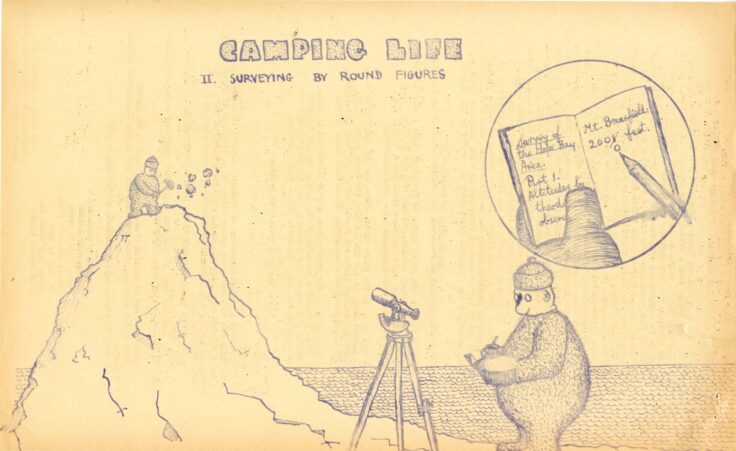 CAMPING LIFE
II. SURVEYING BY ROUND FIGURES
Survey of
the Hope Bay
Area.
Part 1.
Altitudes
Mt. Bransfield:
2001 feet.
0